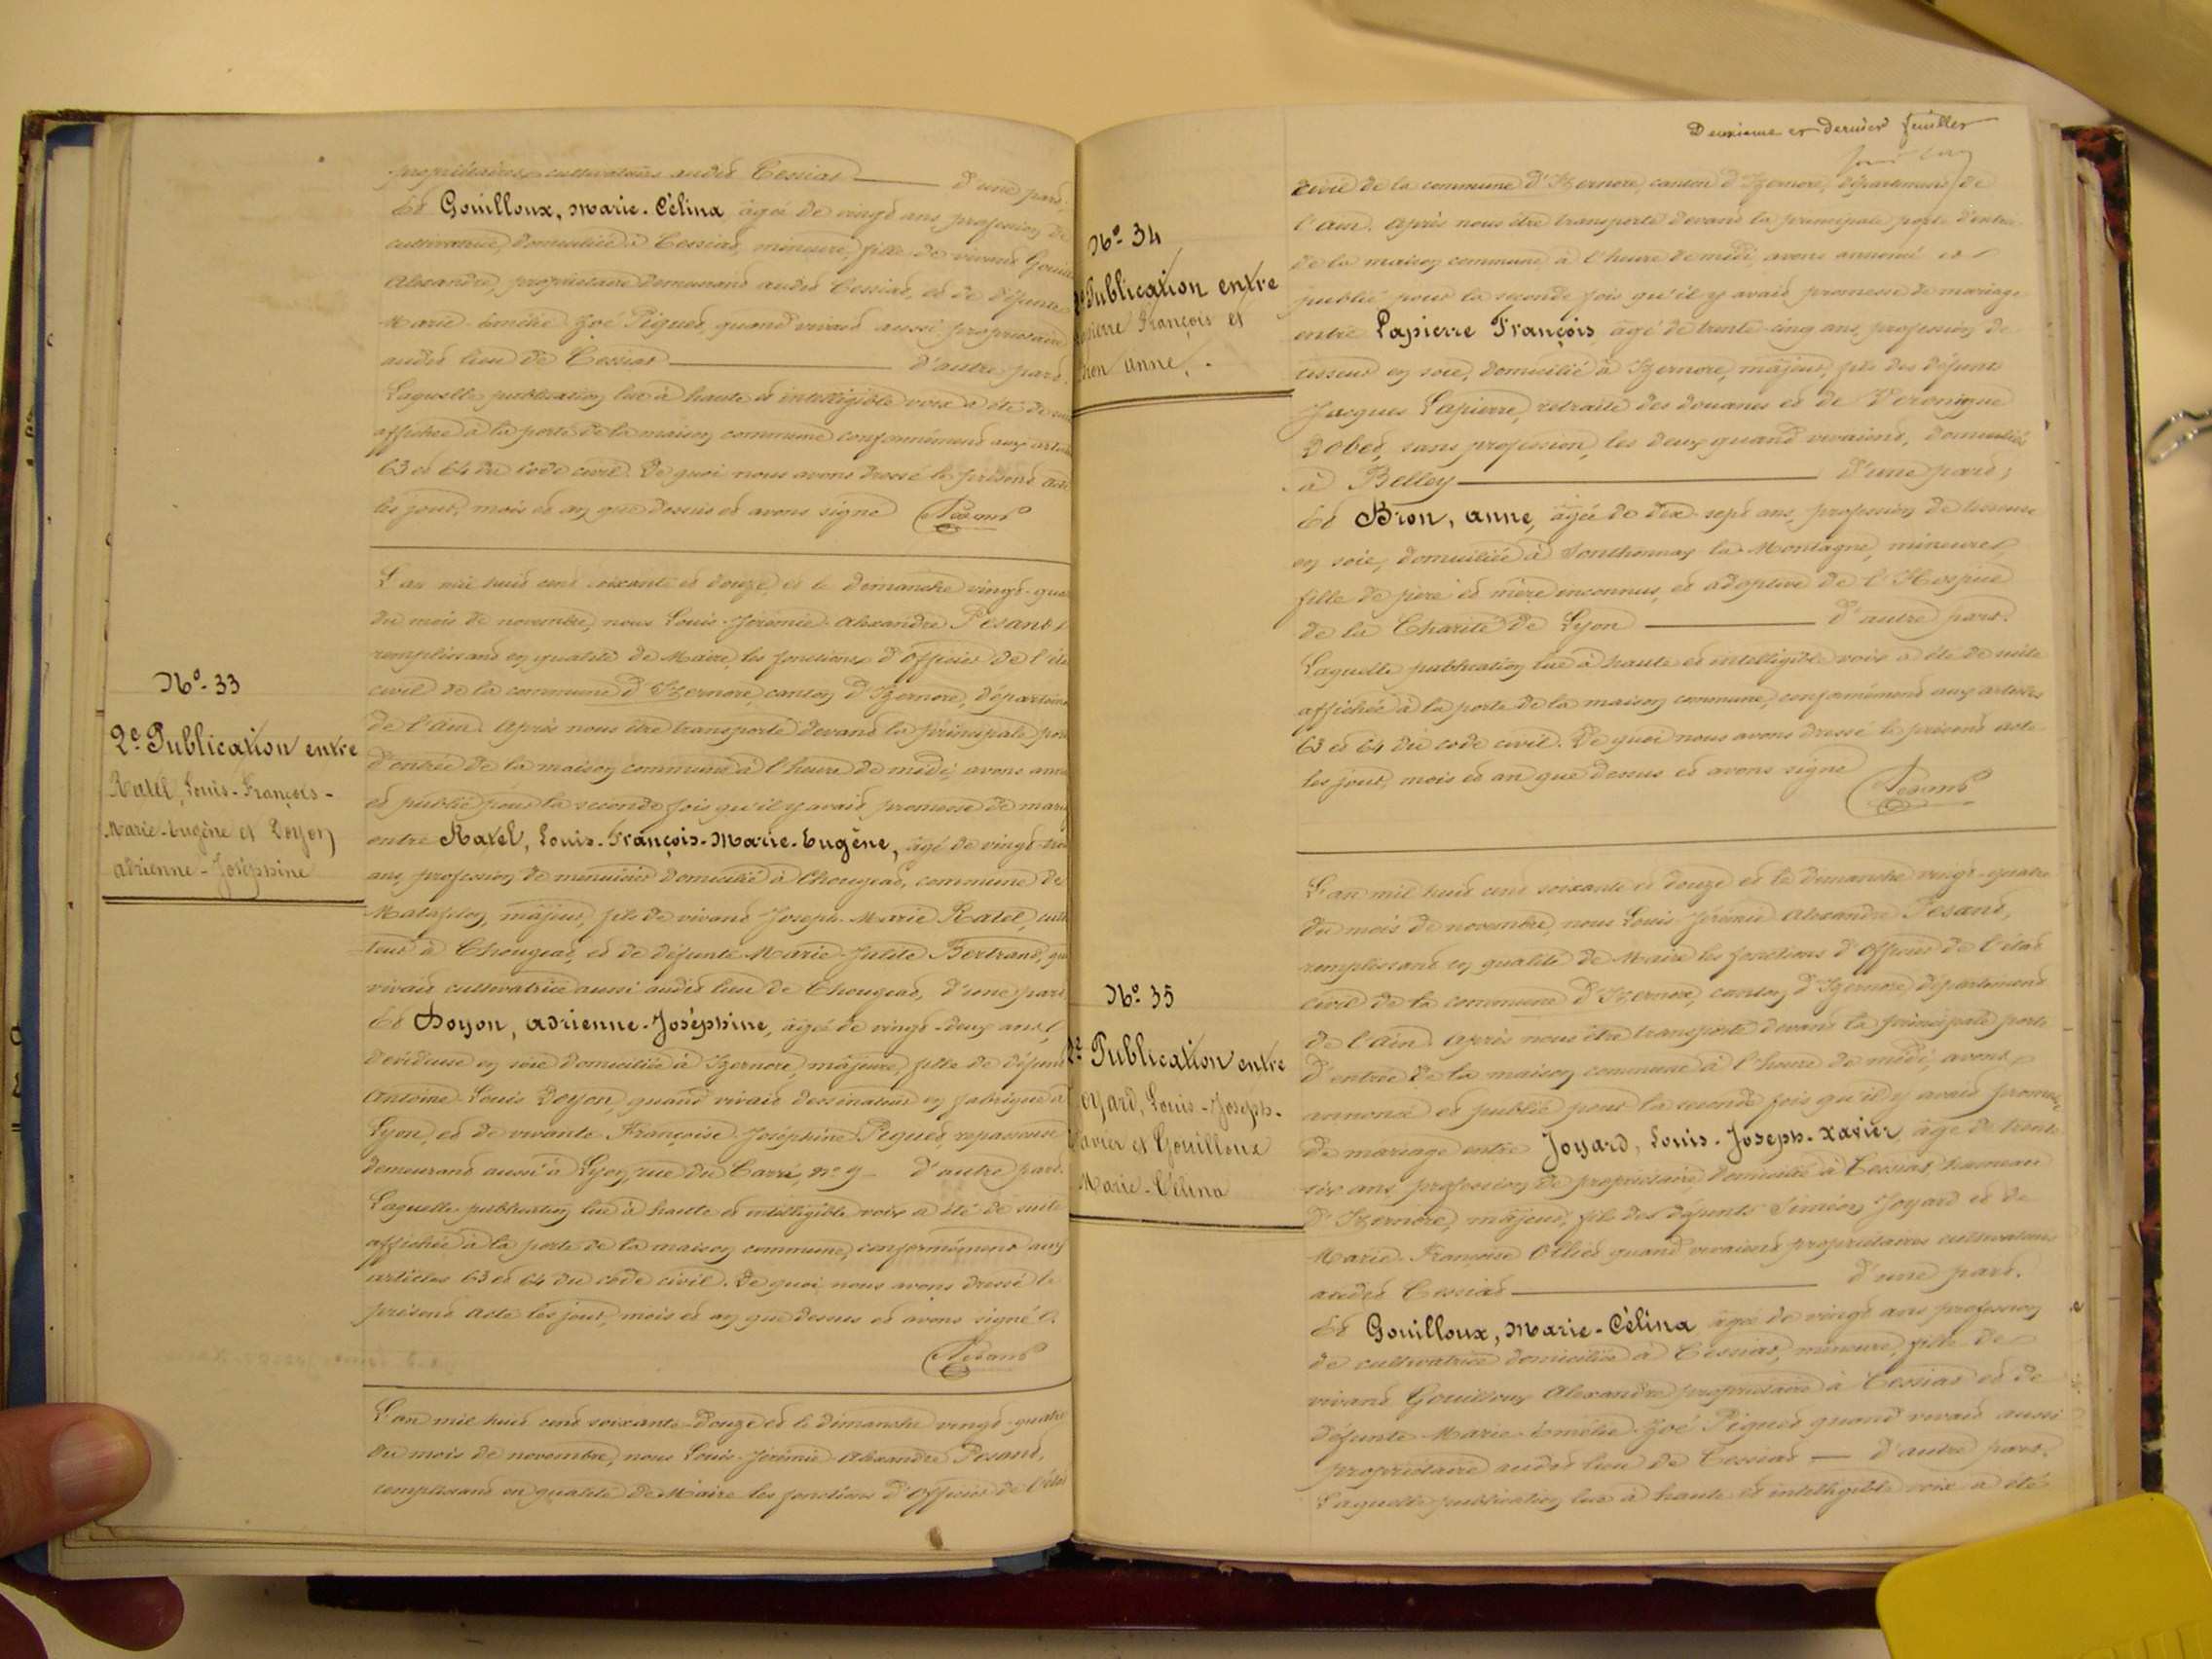 propriétaires cultivateurs audit Cessiat d'une part,
Et Gouilloux, Marie-Célina, âgée de vingt ans, profession de
cultivatrice, domiciliée à Cessiat, mineure, fille de vivant
Alexandre, propriétaire demeurant audit Cessiat, et de défunte
Marie-Emélie-Zoé Piquet, quand vivait aussi propriétaire
audit lieu de Cessiat d'autre part.
Laquelle publication lue à haute et intelligible voix a été de
affichée à la porte de la maison commune conformément aux
63 et 64 du code civil. De quoi nous avons dressé le présent acte
les jour, mois et an que dessus et avons signé Pesant
N° 33
2e Publication entre
Ratel, Louis-François-
Marie-Eugène et Doyon
Adrienne-Joséphine
L'an mil huit cent soixante et douze, et le dimanche vingt-
du mois de novembre, nous Louis-Jérémie-Alexandre Pesant
remplissant en qualité de Maire, les fonctions d'Officier de l'
civil de la commune d'Izernore, canton d'Izernore,
de l'Ain. Après nous être transporté devant la principale
d'entrée de la maison commune à l'heure de midi, avons
et publié pour la seconde fois qu'il y avait promesse de
entre Ratel, Louis-François-Marie-Eugène, âgé de vingt-
ans, profession de menuisier domicilié à Chougeat, commune de
Matafelon, majeur, fils de vivant Joseph-Marie Ratel,
à Chougeat, et de défunte Marie-Julite Bertrand,
vivait cultivatrice aussi audit lieu de Chougeat, d'une part,
Et Doyon, Adrienne-Joséphine, âgée de vingt-deux ans,
dévideuse en soie domiciliée à Izernore, majeure, fille de défunt
Antoine-Louis Doyon, quand vivait dessinateur en fabrique à
Lyon, et de vivante Françoise-Joséphine Piquet, repasseuse
demeurant aussi à Lyon, rue du Carré, n° 9 d'autre part.
Laquelle publication lue à haute et intelligible voix a été de suite
affichée à la porte de la maison commune, conformément aux
articles 63 et 64 du code civil. De quoi nous avons dressé le
présent acte les jour, mois et an que dessus et avons signé
Pesant
L'an mil huit cent soixante-douze et le dimanche vingt-quatre
du mois de novembre, nous Louis-Jérémie-Alexandre Pesant,
remplissant en qualité de Maire les fonctions d'Officier de l'état
Deuxième et dernier feuillet
civil de la commune d'Izernore, canton d'Izernore, département de
l'Ain. Après nous être transporté devant la principale porte d'entrée
de la maison commune à l'heure de midi, avons annoncé et
publié pour la seconde fois qu'il y avait promesse de mariage
entre Lapierre François, âgé de trente-cinq ans, profession de
tisseur en soie, domicilié à Izernore, majeur, fils des défunts
Jacques Lapierre, retraité des douanes et de Véronique
Dobet, sans profession, les deux quand vivaient, domiciliés
à Belley d'une part,
Et Bron, Anne, âgée de dix-sept ans, profession de tisseuse
en soie, domiciliée à Sonthonnax-la-Montagne, mineure
fille de père et mère inconnus, et adoptive de l'Hospice
de la Charité de Lyon d'autre part.
Laquelle publication lue à haute et intelligible voix a été de suite
affichée à la porte de la maison commune, conformément aux articles
63 et 64 du code civil. De quoi nous avons dressé le présent acte
les jour, mois et an que dessus et avons signé
Pesant
N° 34
Publication entre
François et
Anne,
L'an mil huit cent soixante et douze et le dimanche vingt-quatre
du mois de novembre, nous Louis-Jérémie Alexandre Pesant,
remplissant en qualité de Maire les fonctions d'Officier de l'état
civil de la commune d'Izernore, canton d'Izernore, département
de l'Ain. Après nous être transporté devant la principale porte
d'entrée de la maison commune à l'heure de midi, avons
annoncé et publié pour la seconde fois qu'il y avait promesse
de mariage entre Joyard, Louis-Joseph-Xavier âgé de trente
six ans, profession de propriétaire, domicilié à Cessiat, hameau
d'Izernore, majeur, fils des défunts Siméon Joyard et de
Marie-Françoise Olliet quand vivaient propriétaires cultivateurs
audit Cessiat d'une part.
Et Gouilloux, Marie-Célina âgée de vingt ans profession
de cultivatrice domiciliée à Cessiat, mineure, fille de
vivant Gouilloux Alexandre propriétaire à Cessiat et de
défunte Marie-Emélie-Zoé Piquet quand vivait aussi
propriétaire audit lieu de Cessiat d'autre part.
Laquelle publication lue à haute et intelligible voix a été
N° 35
2e Publication entre
Joyard, Louis-Joseph-
Xavier et Gouilloux
Marie-Célina